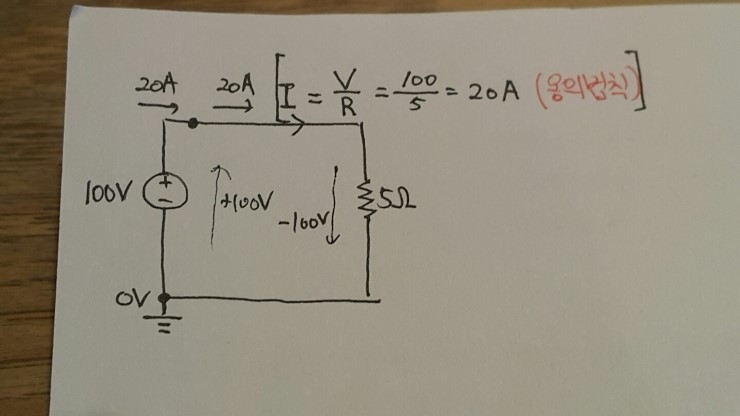 20A 20A [I = V/R = 100/5 = 20A (옴의법칙)]
100V + - +100V -100V 5Ω
0V